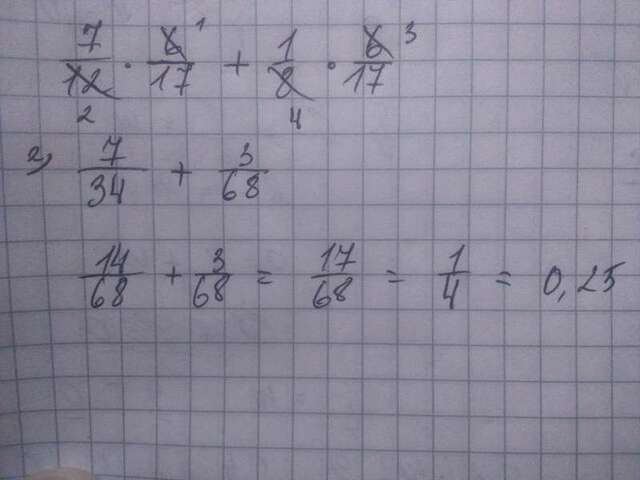 7/12 · 6/17 ¹ + 1/8 · 6/17 ³
2 4
2) 7/34 + 3/68
14/68 + 3/68 = 17/68 = 1/4 = 0,25